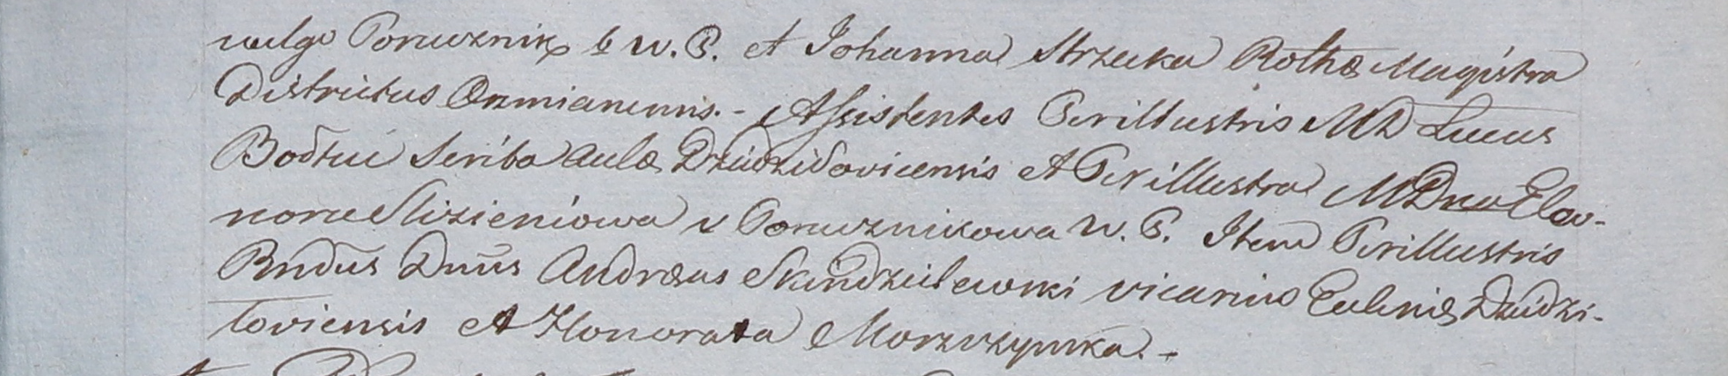 vulgo Porucznik b W. P. et Johanna Strzecka Rothæ Magistra
Districtus Oszmianensis. - Assistentes Perillustris MD Lucas
Bodtui Scriba Aulæ Dziudzidovicensis et Perillustra MDna Eleo-
nora Slizieniowa v Porucznikowa W. P. Item Perillustris
Rndus Dnus Andræas Skindzielewski vicarius Ecclniæ Dziudzi-
loviensis et Honorata Morzczynska. -